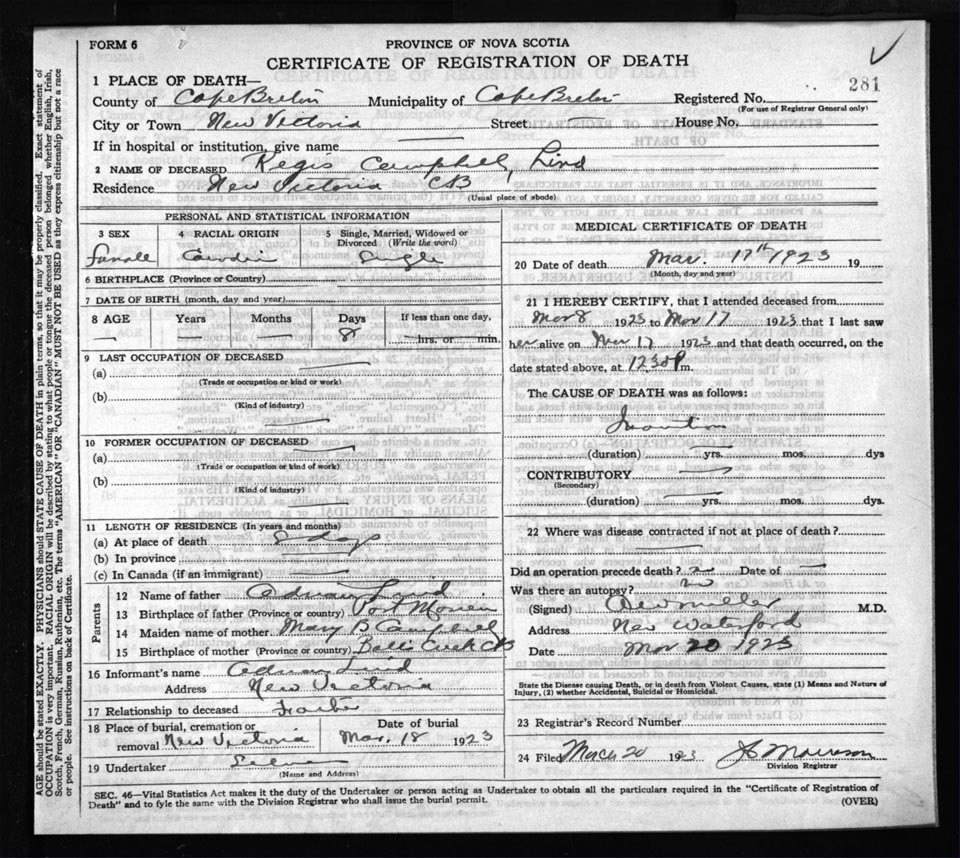 FORM 6
PROVINCE OF NOVA SCOTIA
CERTIFICATE OF REGISTRATION OF DEATH
281
1 PLACE OF DEATH—
County of Cape Breton Municipality of Cape Breton Registered No.
(For use of Registrar General only)
City or Town New Victoria Street — House No.
If in hospital or institution, give name
2 NAME OF DECEASED Regis Campbell Lind
Residence New Victoria CB
(Usual place of abode)
PERSONAL AND STATISTICAL INFORMATION
3 SEX
4 RACIAL ORIGIN
5 Single, Married, Widowed or Divorced (Write the word)
Single
6 BIRTHPLACE (Province or Country)
7 DATE OF BIRTH (month, day and year)
8 AGE Years Months Days If less than one day,
— — 8 hrs. or min.
9 LAST OCCUPATION OF DECEASED
(a)
(Trade or occupation or kind or work)
(b)
(Kind of industry)
10 FORMER OCCUPATION OF DECEASED
(a)
(Trade or occupation or kind or work)
(b)
(Kind of industry)
11 LENGTH OF RESIDENCE (In years and months)
(a) At place of death 8 days
(b) In province
(c) In Canada (if an immigrant)
Parents
12 Name of father Lind
13 Birthplace of father (Province or country) Port Morien
14 Maiden name of mother Mary B Campbell
15 Birthplace of mother (Province or country) CB
16 Informant's name Lind
Address New Victoria
17 Relationship to deceased Father
18 Place of burial, cremation or removal New Victoria
Date of burial
Mar. 18 1923
19 Undertaker
(Name and Address)
MEDICAL CERTIFICATE OF DEATH
20 Date of death Mar. 17th 1923 19
(Month, day and year)
21 I HEREBY CERTIFY, that I attended deceased from
Mar 8 1923 to Mar 17 1923 that I last saw
her alive on Mar 17 1923 and that death occurred, on the
date stated above, at 12.30 P m.
The CAUSE OF DEATH was as follows:
Inanition
(duration) yrs. mos. dys
CONTRIBUTORY
(Secondary)
(duration) yrs. mos. dys.
22 Where was disease contracted if not at place of death?
Did an operation precede death? no Date of —
Was there an autopsy? no
(Signed) Miller M.D.
Address New Waterford
Date Mar 20 1923
State the Disease causing Death, or in death from Violent Causes, state (1) Means and Nature of
Injury, (2) whether Accidental, Suicidal or Homicidal.
23 Registrar's Record Number
24 Filed March 20 1923 Morrison
Division Registrar
SEC. 46—Vital Statistics Act makes it the duty of the Undertaker or person acting as Undertaker to obtain all the particulars required in the "Certificate of Registration of
Death" and to fyle the same with the Division Registrar who shall issue the burial permit. (OVER)
AGE should be stated EXACTLY. PHYSICIANS should STATE CAUSE OF DEATH in plain terms, so that it may be properly classified. Exact statement of
OCCUPATION is very important. RACIAL ORIGIN will be described by stating to what people or tongue the deceased person belonged whether English, Irish,
Scotch, French, German, Russian, Ruthenian, etc. The terms "AMERICAN" OR "CANADIAN" MUST NOT BE USED as they express citizenship but not a race
or people. See instructions on back of Certificate.